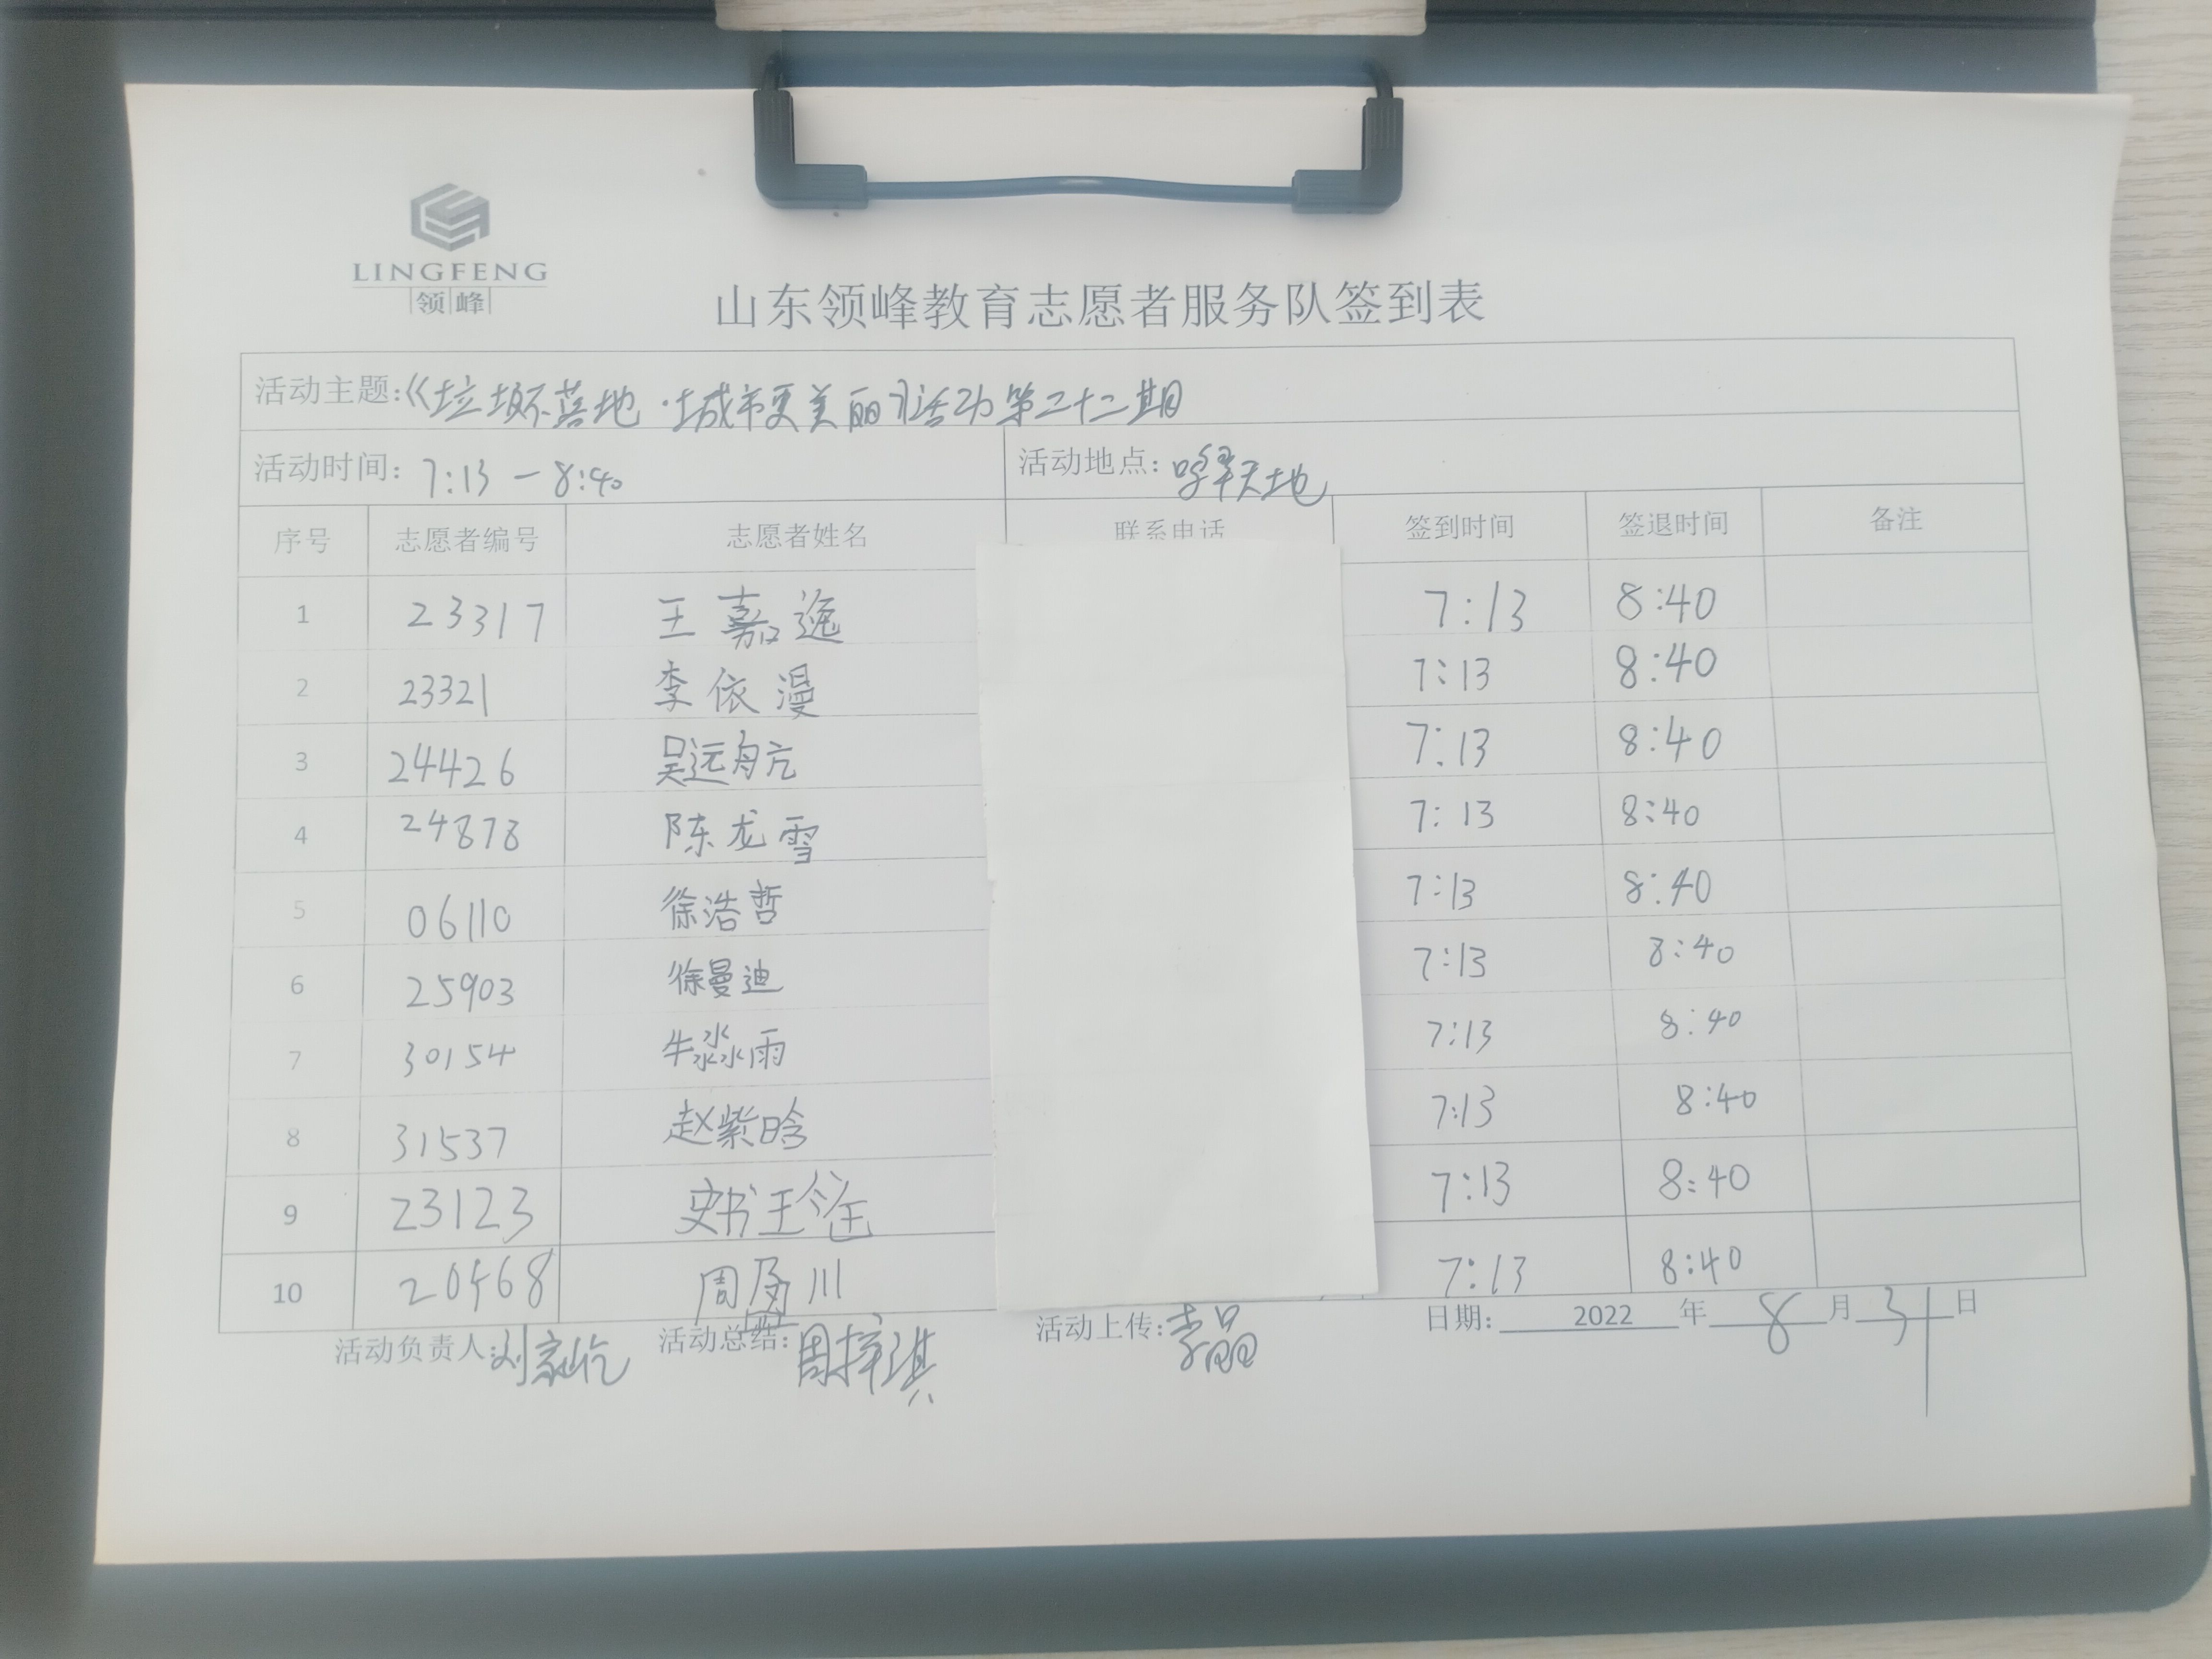 LINGFENG
领峰
山东领峰教育志愿者服务队签到表
活动主题:《垃圾不落地·城市更美丽》活动第二十二期
活动时间: 7:13 — 8:40 活动地点: 天地
序号 志愿者编号 志愿者姓名 联系电话 签到时间 签退时间 备注
1 23317 王嘉 7:13 8:40
2 23321 李依漫 7:13 8:40
3 24426 吴远航 7:13 8:40
4 24878 陈龙雪 7:13 8:40
5 06110 徐浩哲 7:13 8:40
6 25903 徐曼迪 7:13 8:40
7 30154 牛淼雨 7:13 8:40
8 31537 赵紫晗 7:13 8:40
9 23123 史书 7:13 8:40
10 20468 周 川 7:13 8:40
活动负责人: 刘家 活动总结: 周梓淇 活动上传: 李晶 日期: 2022 年 8 月 31 日